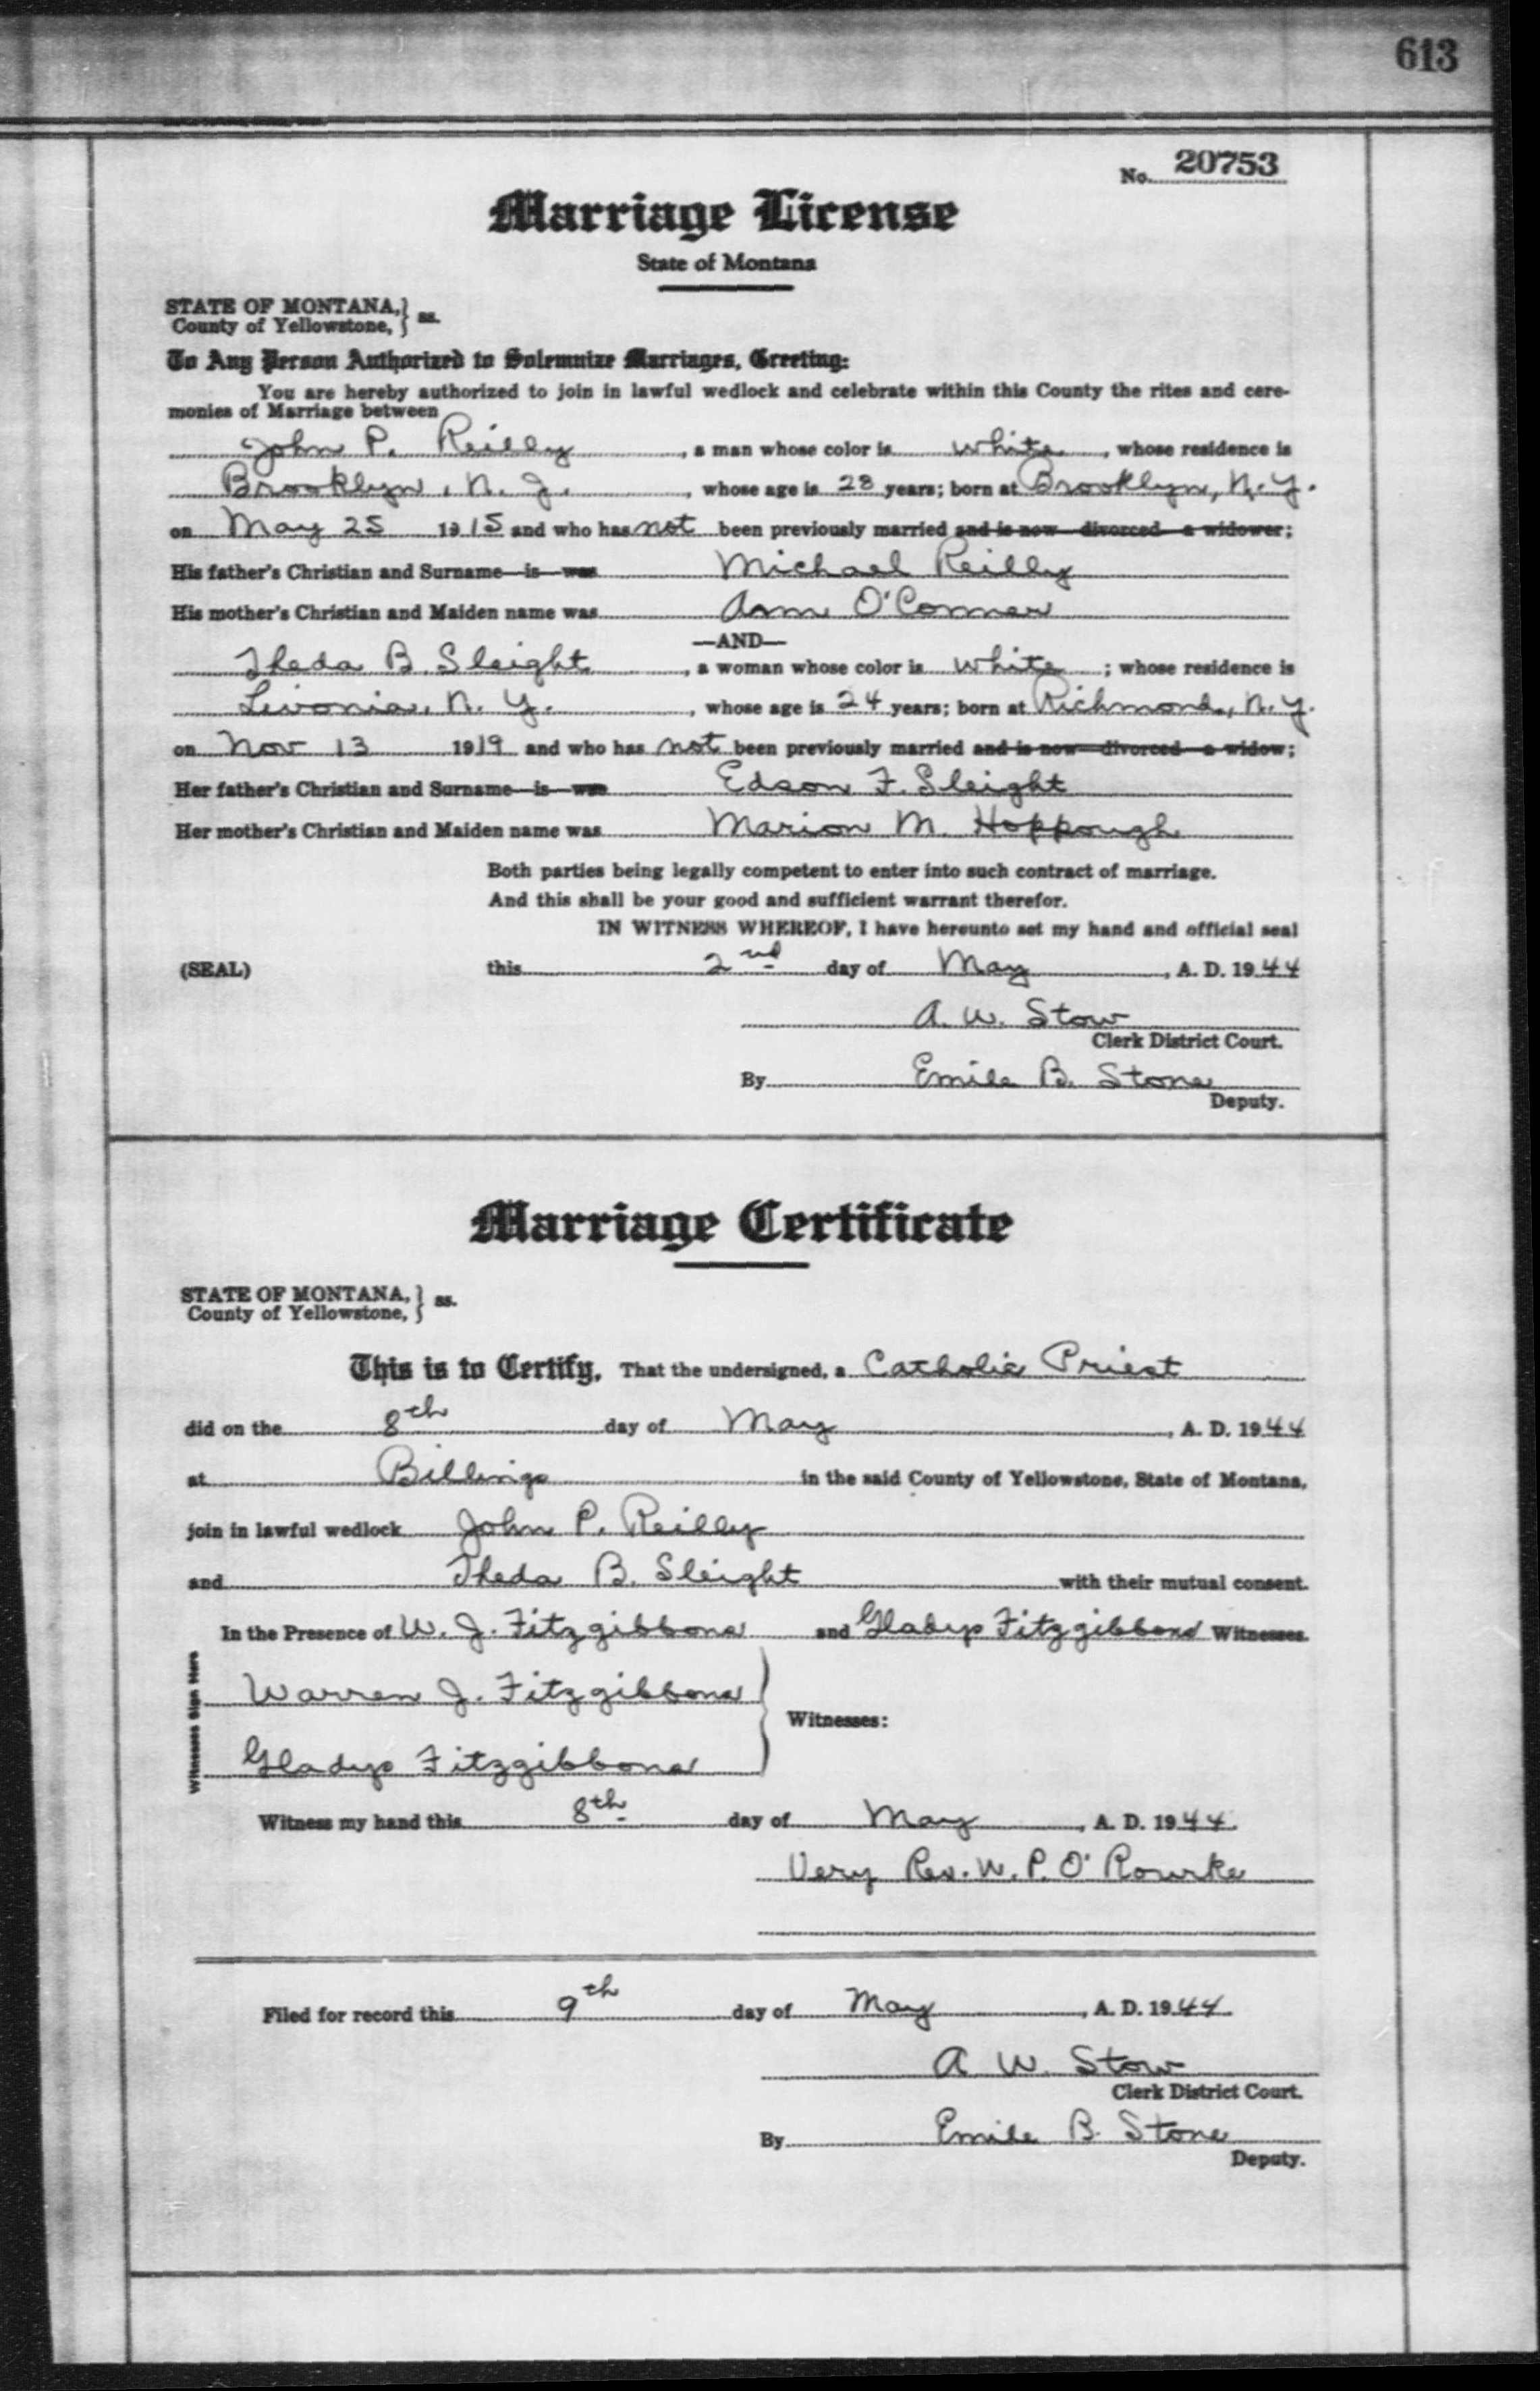 613
No. 20753
Marriage License
State of Montana
STATE OF MONTANA, } ss.
County of Yellowstone,
To Any Person Authorized to Solemnize Marriages, Greeting:
You are hereby authorized to join in lawful wedlock and celebrate within this County the rites and cere-
monies of Marriage between
John P. Reilly, a man whose color is white, whose residence is
Brooklyn, N. Y., whose age is 28 years; born at Brooklyn, N.Y.
on May 25 1915 and who has not been previously married and is now divorced a widower;
His father's Christian and Surname is was Michael Reilly
His mother's Christian and Maiden name was Ann O'Conner
—AND—
Theda B. Sleight, a woman whose color is white; whose residence is
Livonia, N. Y., whose age is 24 years; born at Richmond, N.Y.
on Nov 13 1919 and who has not been previously married and is now divorced a widow;
Her father's Christian and Surname is was Edson F. Sleight
Her mother's Christian and Maiden name was Marion M. Hoppough
Both parties being legally competent to enter into such contract of marriage.
And this shall be your good and sufficient warrant therefor.
IN WITNESS WHEREOF, I have hereunto set my hand and official seal
(SEAL) this 2nd day of May, A. D. 1944
A. W. Stow
Clerk District Court.
By Emile B. Stone
Deputy.
Marriage Certificate
STATE OF MONTANA, } ss.
County of Yellowstone,
This is to Certify, That the undersigned, a Catholic Priest
did on the 8th day of May, A. D. 1944
at Billings in the said County of Yellowstone, State of Montana,
join in lawful wedlock John P. Reilly
and Theda B. Sleight with their mutual consent.
In the Presence of W. J. Fitzgibbons and Gladys Fitzgibbons Witnesses.
Witnesses Sign Here
Warren J. Fitzgibbons
Witnesses:
Gladys Fitzgibbons
Witness my hand this 8th day of May, A. D. 1944.
Very Rev. W. P. O'Rourke
Filed for record this 9th day of May, A. D. 1944.
A W. Stow
Clerk District Court.
By Emile B. Stone
Deputy.